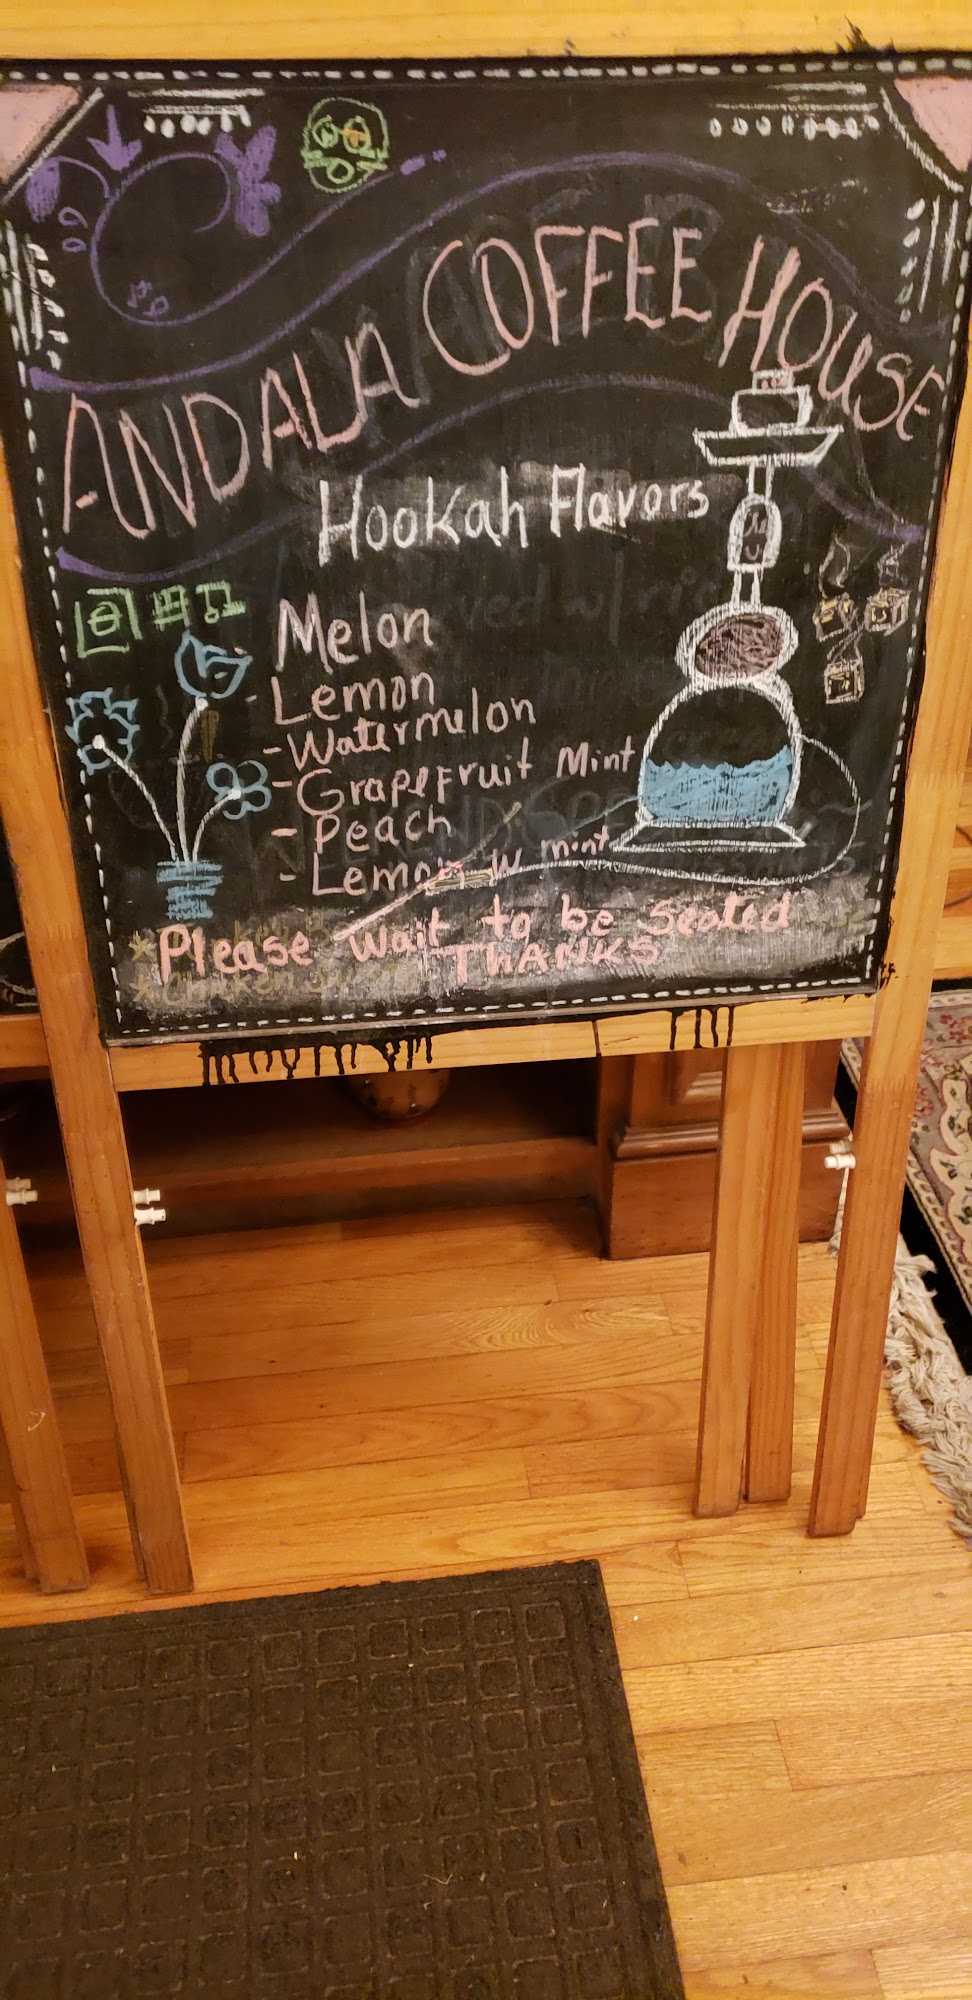 ANDALA COFFEE HOUSE
Hookah Flavors
Melon
- Lemon
- Watermelon
- Grapefruit Mint
- Peach
- Lemon w mint
Please wait to be seated
THANKS